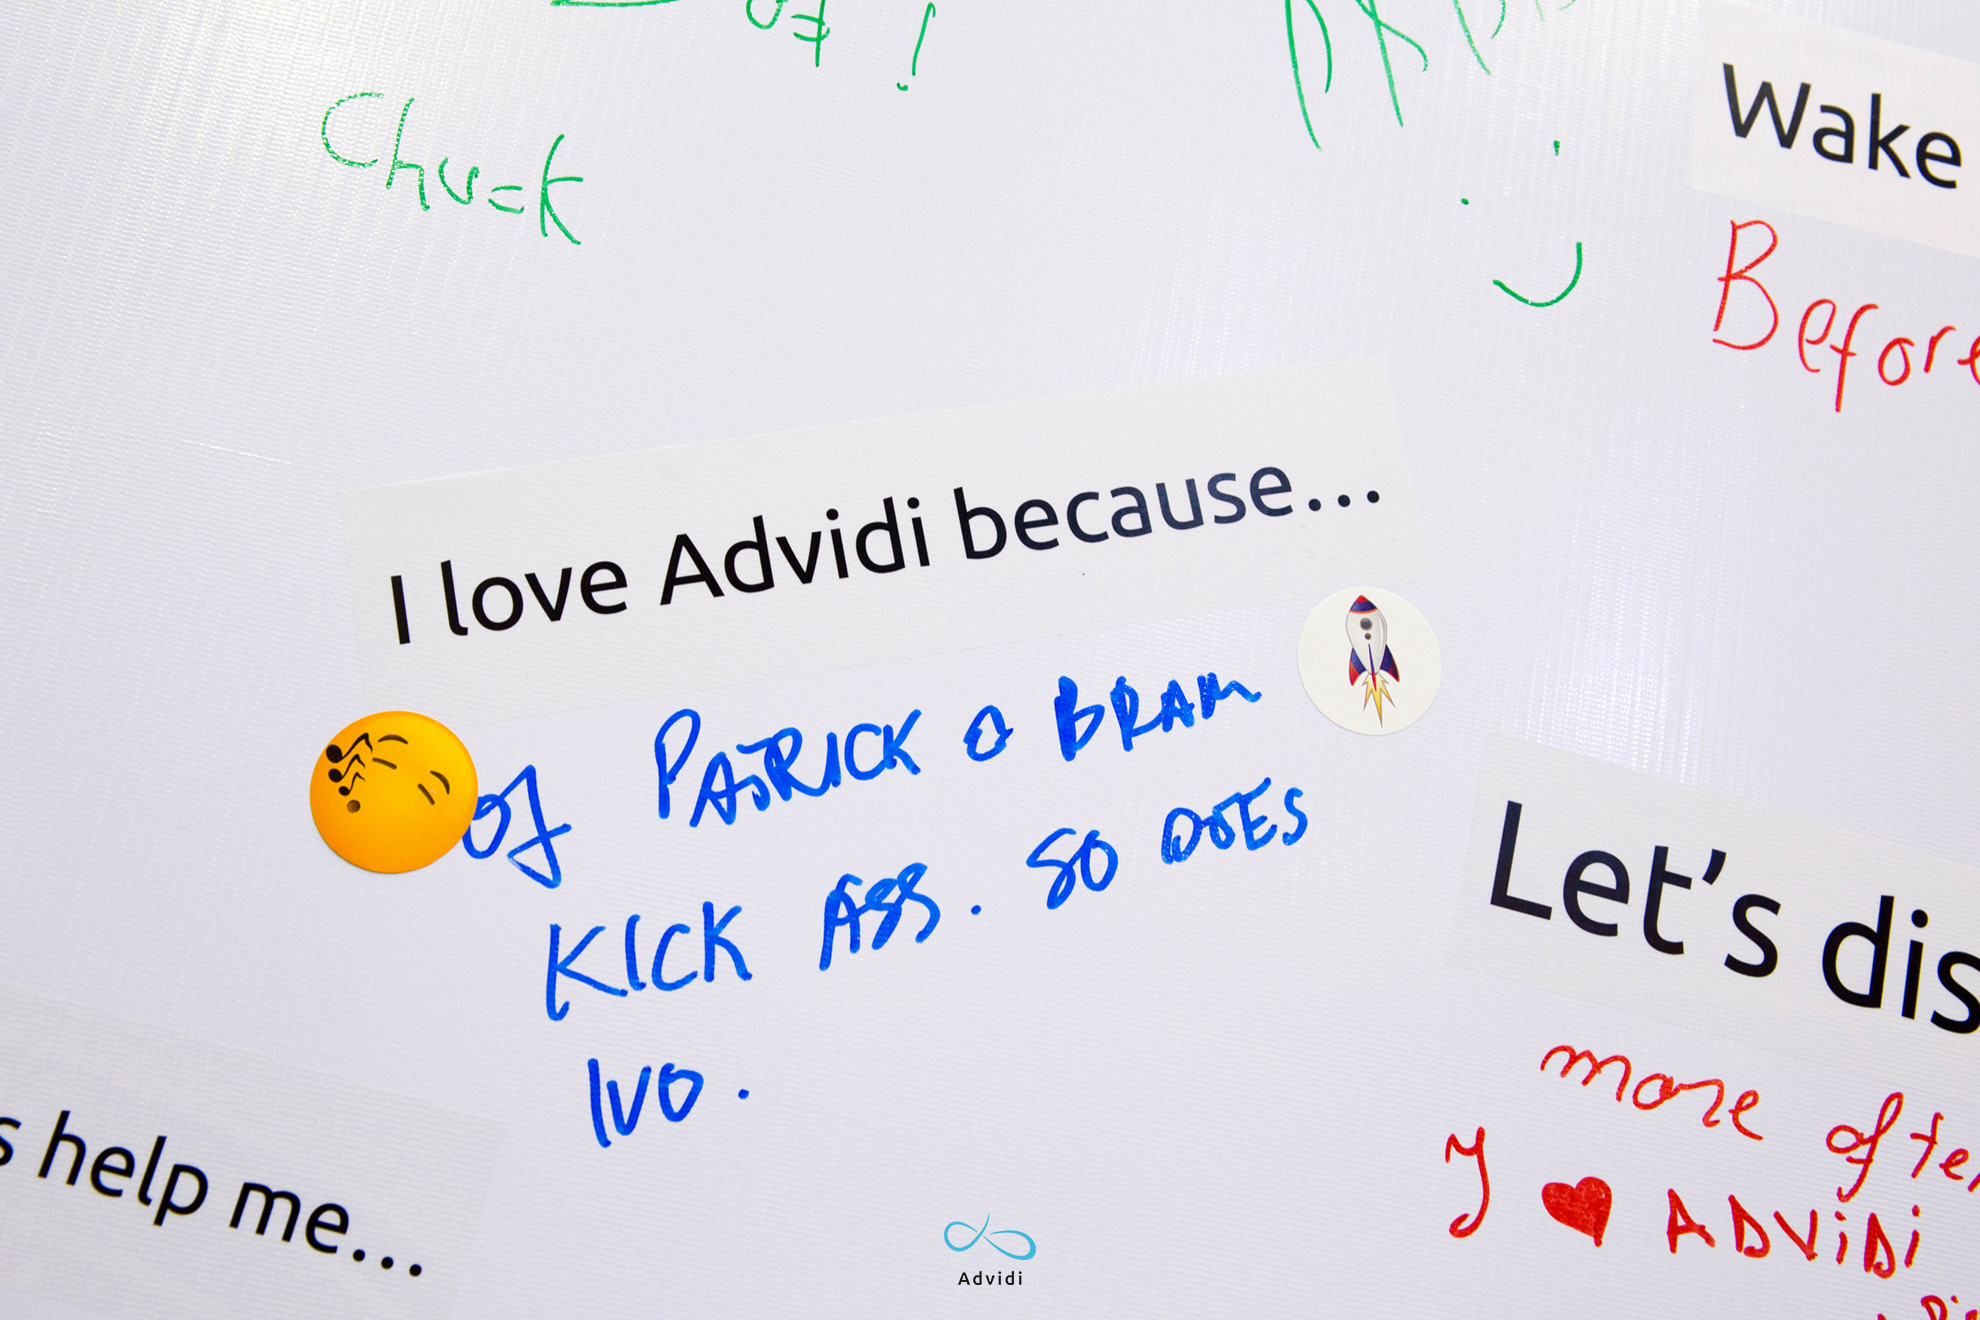 of !
Chuck
Wake
Before
I love Advidi because...
of PATRICK & BRAM
KICK ASS. SO DOES
IVO.
Let's dis
more often
I ♥ ADViDi
s help me...
Advidi